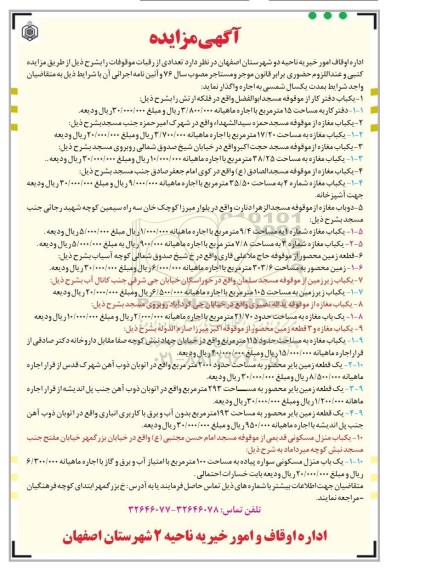 آگهی مزایده
اداره اوقاف امور خیریه ناحیه دو شهرستان اصفهان در نظر دارد تعدادی از رقبات موقوفات را بشرح ذیل از طریق مزایده
کتبی و عنداللزوم حضوری برابر قانون موجر و مستاجر مصوب سال ۷۶ و آئین نامه اجرائی آن با شرایط ذیل به متقاضیان
واجد شرایط بمدت یکسال شمسی به اجاره واگذار نماید:
۱- یکباب دفتر کار از موقوفه مسجد ابوالفضل واقع در فلکه ارتش را بشرح ذیل:
۱-۱- دفتر کار به مساحت ۱۵ متر مربع با اجاره ماهیانه ۳/۸۰۰/۰۰۰ ریال و مبلغ ۳۰/۰۰۰/۰۰۰ ریال ودیعه.
۲- یکباب مغازه از موقوفه مسجد حمزه سیدالشهداء واقع در شهرک امیر حمزه جنب مسجد بشرح ذیل:
۱-۲- یکباب مغازه به مساحت ۱۷/۲۰ متر مربع با اجاره ماهیانه ۳/۷۰۰/۰۰۰ ریال و مبلغ ۲۰/۰۰۰/۰۰۰ ریال ودیعه
۳- یکباب مغازه از موقوفه مسجد حجت اکبر واقع در خیابان شیخ صدوق شمالی روبروی مسجد بشرح ذیل:
۱-۳- یکباب مغازه به مساحت ۳۸/۲۵ متر مربع با اجاره ماهیانه ۱۰/۰۰۰/۰۰۰ ریال و مبلغ ۳۰/۰۰۰/۰۰۰ ریال ودیعه..
۴- یکباب مغازه از موقوفه مسجد الصادق (ع) واقع در کوی امام جعفر صادق جنب مسجد بشرح ذیل:
۱-۴- یکباب مغازه شماره ۴ به مساحت ۳۵/۵۰ متر مربع با اجاره ماهیانه ۹/۰۰۰/۰۰۰ ریال و مبلغ ۳۰/۰۰۰/۰۰۰ ریال ودیعه
جهت آشپزخانه.
۵- دوباب مغازه از موقوفه مسجد الزهرا دنارت واقع در بلوار میرزا کوچک خان سه راه سیمین کوچه شهید رجائی جنب
مسجد بشرح ذیل:
۱-۵- یکباب مغازه شماره ۱ به مساحت ۹/۴ متر مربع با اجاره ماهیانه ۱/۰۰۰/۰۰۰ ریال و مبلغ ۵/۰۰۰/۰۰۰ ریال ودیعه.
۲-۵- یکباب مغازه شماره ۳ به مساحت ۷/۸ متر مربع با اجاره ماهیانه ۹۰۰/۰۰۰ ریال به مبلغ ۵/۰۰۰/۰۰۰ ریال ودیعه.
۶- قطعه زمین محصور از موقوفه حاج ملاعلی قاری واقع در خ شیخ صدوق شمالی کوچه آسیاب بشرح ذیل:
۱-۶- زمین محصور به مساحت ۳۰۳/۶ متر مربع با اجاره ماهیانه ۶/۰۰۰/۰۰۰ ریال و مبلغ ۳۰/۰۰۰/۰۰۰ ریال ودیعه.
۷- یکباب زیرزمین از موقوفه مسجد سلمان واقع در خوراسگان خیابان جی شرقی جنب کانال آب بشرح ذیل:
۱-۷- یکباب زیرزمین به مساحت ۱۰۵ متر مربع با اجاره ماهیانه ۶/۵۰۰/۰۰۰ ریال و مبلغ ۲۰/۰۰۰/۰۰۰ ریال ودیعه
۸- یکباب مغازه از موقوفه یداله نصیری واقع در خیابان جی گرداباد روبروی مسجد بشرح ذیل:
۱-۸- یک باب مغازه به مساحت حدود ۲۱/۷۰ متر با اجاره ماهیانه ۲/۰۰۰/۰۰۰ ریال و مبلغ ۱۰/۰۰۰/۰۰۰ ریال ودیعه
۹- یکباب مغازه و ۳ قطعه زمین محصور از موقوفه اکبر میرزا صارم الدوله بشرح ذیل:
۱-۹- یکباب مغازه به مساحت حدود ۱۱۵ متر مربع واقع در خیابان جهاد نبش کوچه صفا مقابل داروخانه دکتر صادقی از
قرار اجاره ماهیانه ۱۵/۰۰۰/۰۰۰ ریال و مبلغ ۴۰/۰۰۰/۰۰۰ ریال ودیعه.
۲-۹- یک قطعه زمین بایر محصور به مساحت حدود ۲۰۰۰ متر مربع واقع در اتوبان ذوب آهن شهرک قدس از قرار اجاره
ماهیانه ۸/۵۰۰/۰۰۰ ریال و مبلغ ۳۰/۰۰۰/۰۰۰ ریال ودیعه.
۳-۹- یک قطعه زمین بایر محصور به مساحت ۲۹۳ متر مربع واقع در اتوبان ذوب آهن جنب پل اندیشه از قرار اجاره
ماهانه ۱/۲۰۰/۰۰۰ ریال و مبلغ ۳۰/۰۰۰/۰۰۰ ریال ودیعه.
۴-۹- یک قطعه زمین بایر محصور به مساحت ۱۹۳ متر مربع بدون آب و برق با کاربری انباری واقع در اتوبان ذوب آهن
جنب پل اندیشه با اجاره ماهیانه ۹۵۰/۰۰۰ ریال و مبلغ ۳۰/۰۰۰/۰۰۰ ریال ودیعه.
۱۰- یکباب منزل مسکونی قدیمی از موقوفه مسجد امام حسن مجتبی (ع) واقع در خیابان بزرگمهر خیابان مفتح جنب
مسجد نبش کوچه میرداماد به شرح ذیل:
۱-۱۰- یک باب منزل مسکونی سواره پیاده به مساحت ۱۰۰ متر مربع با امتیاز آب و برق و گاز با اجاره ماهیانه ۶/۳۰۰/۰۰۰
ریال و مبلغ ۲۰/۰۰۰/۰۰۰ ریال ودیعه بابت خسارات احتمالی.
متقاضیان جهت اطلاعات بیشتر با شماره های ذیل تماس حاصل فرمایند یا به آدرس: خ بزرگمهر ابتدای کوچه فرهنگیان
-مراجعه نمایند.
تلفن تماس: ۳۲۶۴۶۰۷۸-۳۲۶۴۶۰۷۷
اداره اوقاف و امور خیریه ناحیه ۲ شهرستان اصفهان